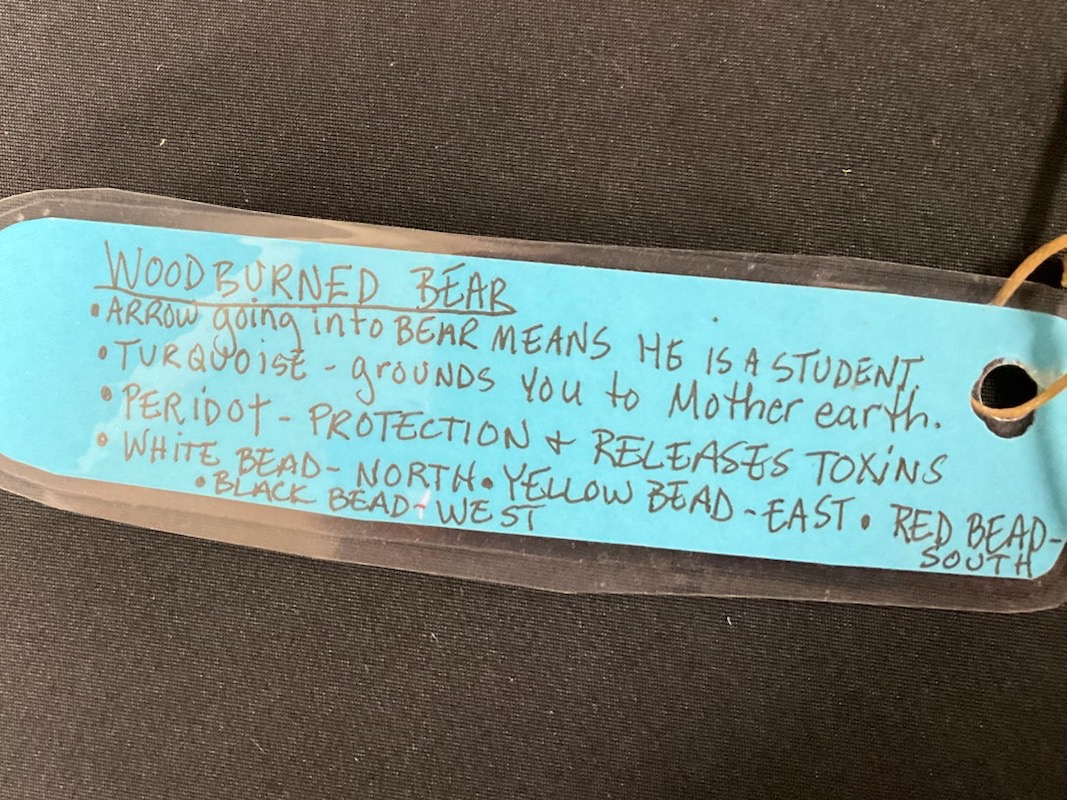 WOODBURNED BEAR
• ARROW going into BEAR MEANS HE IS A STUDENT.
• TURQUOISE - grOUNDS YOU to Mother earth.
• PERIDOT - PROTECTION + RELEASES TOXINS
• WHITE BEAD - NORTH • YELLOW BEAD - EAST • RED BEAD -
SOUTH
• BLACK BEAD - WEST